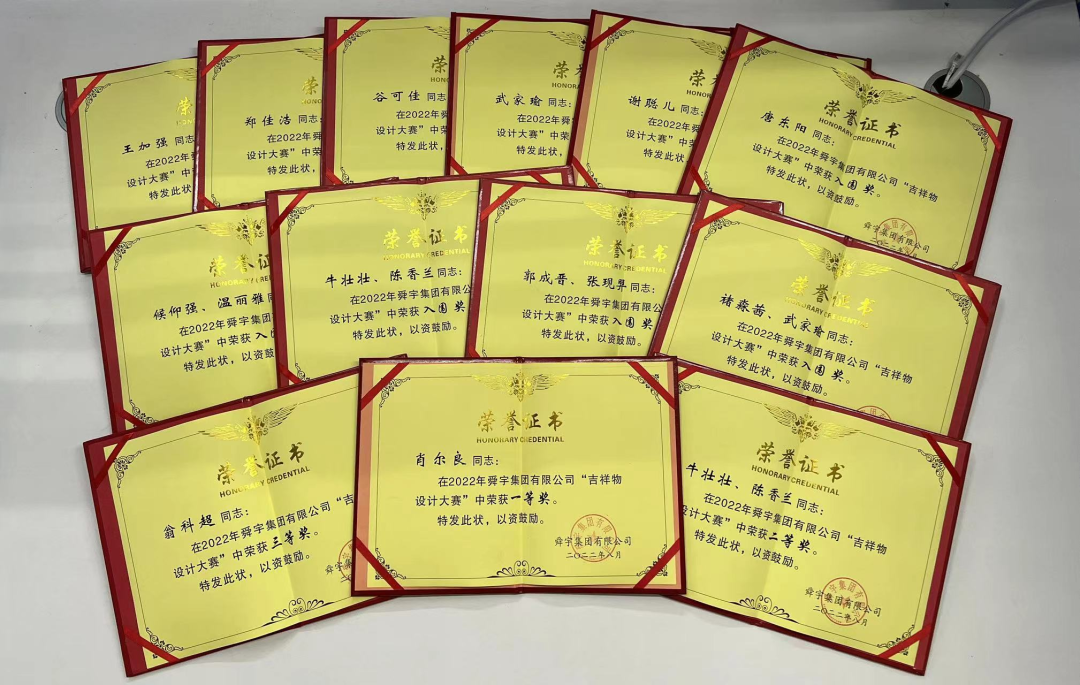 荣
王加强 同志:
在2022年舜
设计大赛”中
特发此状,
荣
HONO
郑佳浩 同志:
在2022年舜
设计大赛”中荣
特发此状,以
荣
HONO
谷可佳 同志:
在2022年舜
设计大赛”中荣
特发此状,以
荣
HONOR
武家瑜 同志:
在2022年舜
设计大赛”中荣
特发此状,以
荣
HONOR
谢聪儿 同志:
在2022年舜
设计大赛”中荣
特发此状,以
荣誉证书
HONORARY CREDENTIAL
唐东阳 同志:
在2022年舜宇集团有限公司“吉祥物
设计大赛”中荣获入围奖。
特发此状,以资鼓励。
舜宇集团有限公司
荣誉证书
HONORARY CREDENTIAL
候仰强、温丽雅同
在2022年舜宇集团
设计大赛”中荣获入
特发此状,以资鼓
荣誉证书
HONORARY CREDENTIAL
牛壮壮、陈香兰同志:
在2022年舜宇集团有限公
设计大赛”中荣获入围奖
特发此状,以资鼓励。
荣誉证书
HONORARY CREDENTIAL
郭成晋、张现昇同志:
在2022年舜宇集团有限公
设计大赛”中荣获入围奖
特发此状,以资鼓励。
荣誉证书
HONORARY CREDENTIAL
褚淼茜、武家瑜同志:
在2022年舜宇集团有限公司“吉祥物
设计大赛”中荣获入围奖。
特发此状,以资鼓励。
荣誉证书
HONORARY CREDENTIAL
翁科超 同志:
在2022年舜宇集团有限公司“吉
设计大赛”中荣获三等奖。
特发此状,以资鼓励。
舜宇
荣誉证书
HONORARY CREDENTIAL
肖尔良 同志:
在2022年舜宇集团有限公司“吉祥物
设计大赛”中荣获一等奖。
特发此状,以资鼓励。
舜宇集团有限公司
二〇二二年八月
荣誉证书
HONORARY CREDENTIAL
牛壮壮、陈香兰同志:
在2022年舜宇集团有限公司“吉祥物
设计大赛”中荣获二等奖。
特发此状,以资鼓励。
舜宇集团有限公司
二〇二二年八月